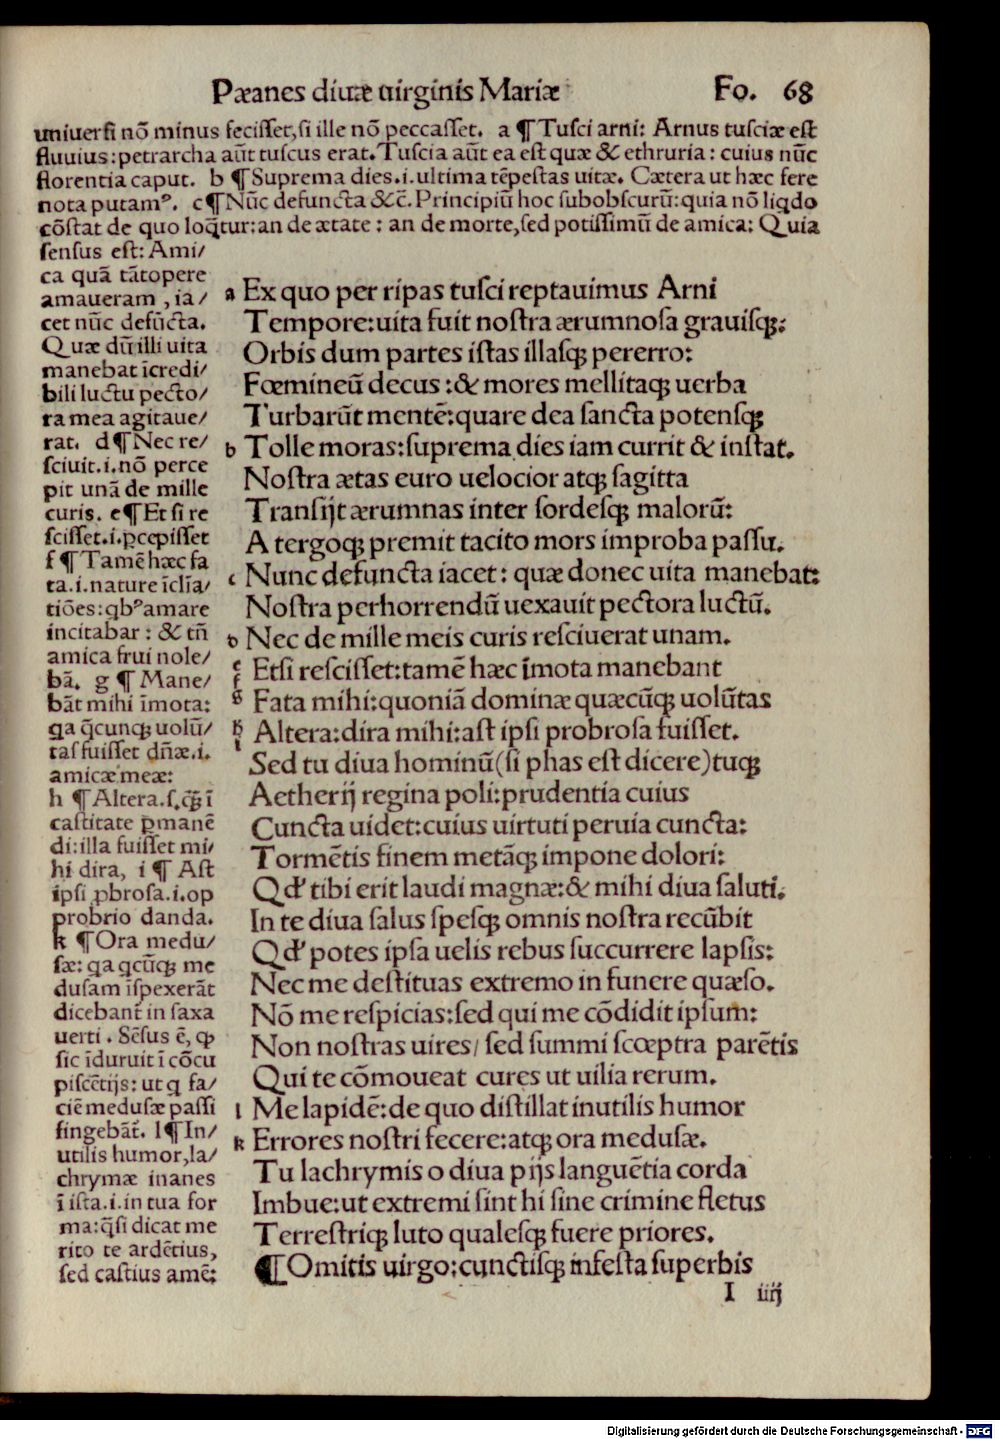 Pæanes diuæ uirginis Mariæ Fo. 68
uniuersi nō minus fecisset, si ille nō peccasset. a ¶ Tusci arni: Arnus tusciæ est
fluuius: petrarcha aūt tuscus erat. Tuscia aūt ea est quæ & ethruria: cuius nūc
florentia caput. b ¶ Suprema dies .i. ultima tēpestas uitæ. Cætera ut hæc fere
nota putamꝰ. c ¶ Nūc defuncta &c̄. Principiū hoc subobscurū: quia nō liqdo
cōstat de quo loq̄tur: an de ætate: an de morte, sed potissimū de amica: Quia
sensus est: Ami/
ca quā tātopere
amaueram, ia/
cet nūc defūcta.
Quæ dū illi uita
manebat īcredi/
bili luctu pecto/
ra mea agitaue/
rat. d ¶ Nec re/
sciuit .i. nō perce
pit unā de mille
curis. e ¶ Et si re
scisset .i. ꝑcepisset
f ¶ Tamē hæc fa
ta .i. nature īclīa/
tiōes: qbꝰ amare
incitabar: & tn̄
amica frui nole/
bā. g ¶ Mane/
bāt mihi īmota:
qa q̄cunqꝫ uolū/
tas fuisset dn̄æ .i.
amicæ meæ:
h ¶ Altera .s. qꝫ̄ ī
castitate ꝑmanē
di: illa fuisset mi/
hi dira, i ¶ Ast
ipsi ꝓbrosa .i. op
probrio danda.
k ¶ Ora medu/
sæ: qa qcūqꝫ me
dusam īspexerāt
dicebant̄ in saxa
uerti. Sēsus ē, ꝙ
sic īduruit ī cōcu
piscētijs: ut q fa/
ciē medusæ passi
fingebāt̄. l ¶ In/
utilis humor, la/
chrymæ inanes
ī ista .i. in tua for
ma: q̄si dicat me
rito te ardētius,
sed castius amē:
a Ex quo per ripas tusci reptauimus Arni
Tempore: uita fuit nostra ærumnosa grauisqꝫ:
Orbis dum partes istas illasqꝫ pererro:
Fœmineū decus: & mores mellitaqꝫ uerba
Turbarūt mentē: quare dea sancta potensqꝫ
b Tolle moras: suprema dies iam currit & instat.
Nostra ætas euro uelocior atqꝫ sagitta
Transijt ærumnas inter sordesqꝫ malorū:
A tergoqꝫ premit tacito mors improba passu.
c Nunc defuncta iacet: quæ donec uita manebat:
Nostra perhorrendū uexauit pectora luctū.
d Nec de mille meis curis resciuerat unam.
e f Etsi rescisset: tamē hæc īmota manebant
g Fata mihi: quoniā dominæ quæcūqꝫ uolūtas
h i Altera: dira mihi: ast ipsi probrosa fuisset.
Sed tu diua hominū (si phas est dicere) tuqꝫ
Aetherij regina poli: prudentia cuius
Cuncta uidet: cuius uirtuti peruia cuncta:
Tormētis finem metāqꝫ impone dolori:
Qd' tibi erit laudi magnæ: & mihi diua saluti.
In te diua salus spesqꝫ omnis nostra recūbit
Qd' potes ipsa uelis rebus succurrere lapsis:
Nec me destituas extremo in funere quæso.
Nō me respicias: sed qui me cōdidit ipsum:
Non nostras uires/ sed summi scœptra parētis
Qui te cōmoueat cures ut uilia rerum.
l Me lapidē: de quo distillat inutilis humor
k Errores nostri fecere: atqꝫ ora medusæ.
Tu lachrymis o diua pijs languētia corda
Imbue: ut extremi sint hi sine crimine fletus
Terrestriqꝫ luto qualesqꝫ fuere priores.
¶ O mitis uirgo: cunctisqꝫ infesta superbis
I iiij
Digitalisierung gefördert durch die Deutsche Forschungsgemeinschaft - DFG